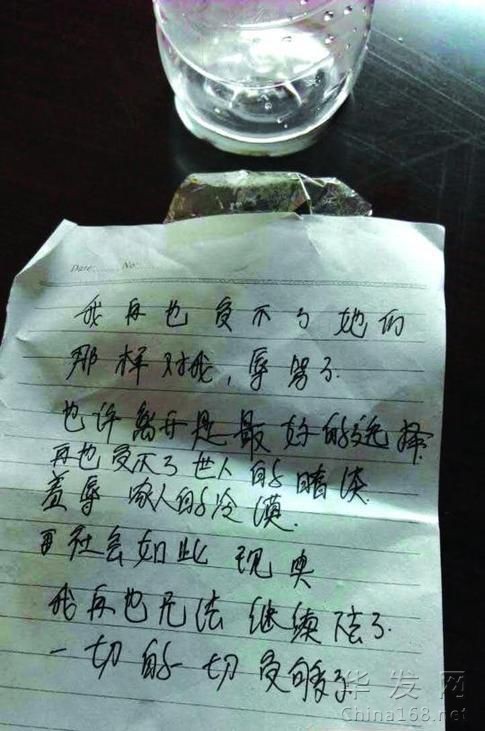 Date: No
我再也受不了她们
那样对我，辱骂了.
也许离开是最好的选择
再也受不了世人的
羞辱 家人的冷漠.
社会如此现
我再也无法继续陪了.
一切的一切受够了.
华发网
China168.net